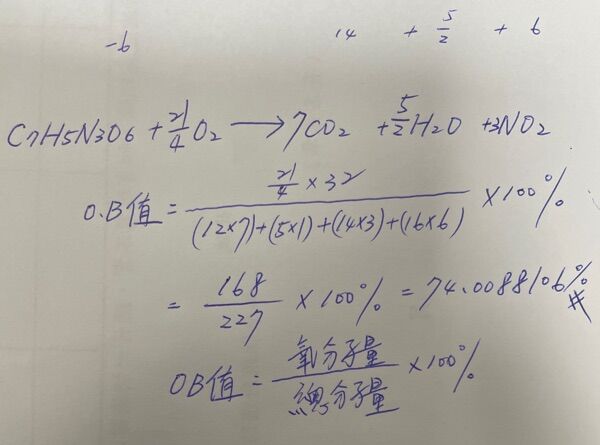 -6 14 + 5/2 + 6
C7H5N3O6 + 21/4 O2 → 7CO2 + 5/2 H2O + 3NO2
O.B值 = (21/4 × 32) / ((12×7)+(5×1)+(14×3)+(16×6)) × 100%
= 168/227 × 100% = 74.0088106% #
OB值 = 氧分子量/總分子量 × 100%